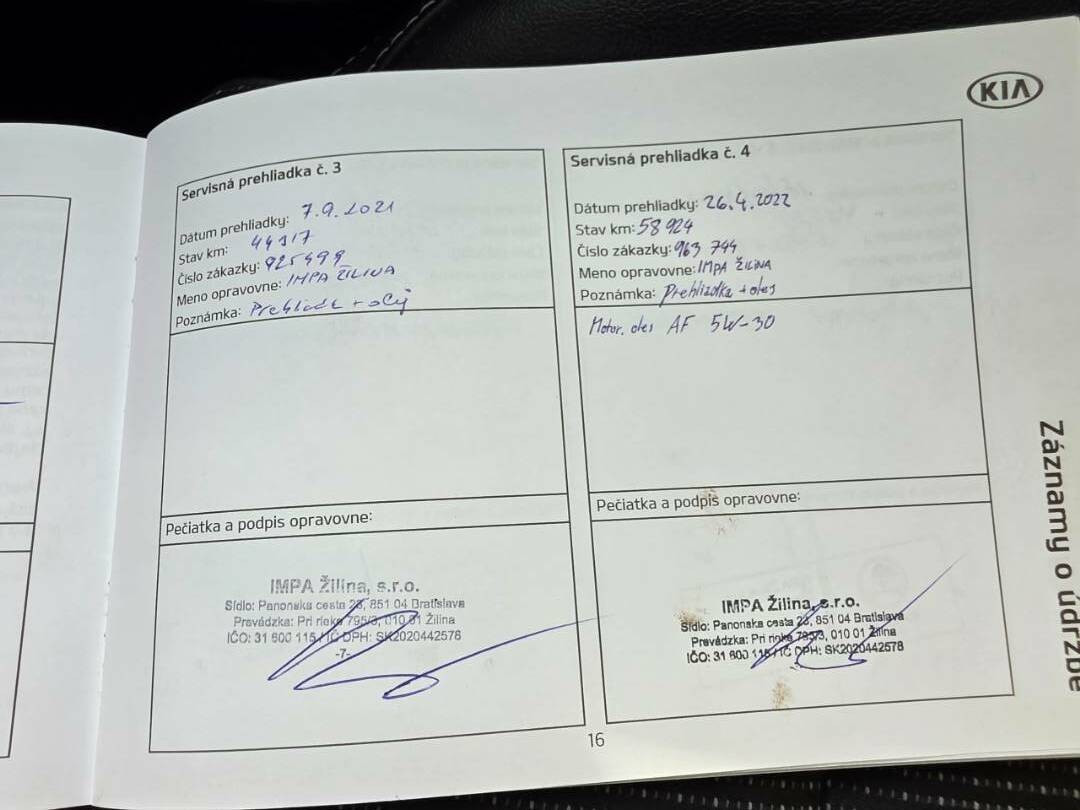 KIA
Servisná prehliadka č. 3
Dátum prehliadky: 7.9.2021
Stav km: 44317
Číslo zákazky: 925499
Meno opravovne: IMPA ŽILINA
Poznámka: Prehliadk + olej
Pečiatka a podpis opravovne:
IMPA Žilina, s.r.o.
Sídlo: Panonska cesta 23, 851 04 Bratislava
Prevádzka: Pri rieke 795/3, 010 01 Žilina
IČO: 31 600 115 / IČ DPH: SK2020442578
-7-
Servisná prehliadka č. 4
Dátum prehliadky: 26.4.2022
Stav km: 58 924
Číslo zákazky: 963 744
Meno opravovne: IMPA ŽILINA
Poznámka: Prehliadka + olej
Motor. olej AF 5W-30
Pečiatka a podpis opravovne:
IMPA Žilina, s.r.o.
Sídlo: Panonska cesta 23, 851 04 Bratislava
Prevádzka: Pri rieke 795/3, 010 01 Žilina
IČO: 31 600 115 / IČ DPH: SK2020442578
16
Záznamy o údržbe